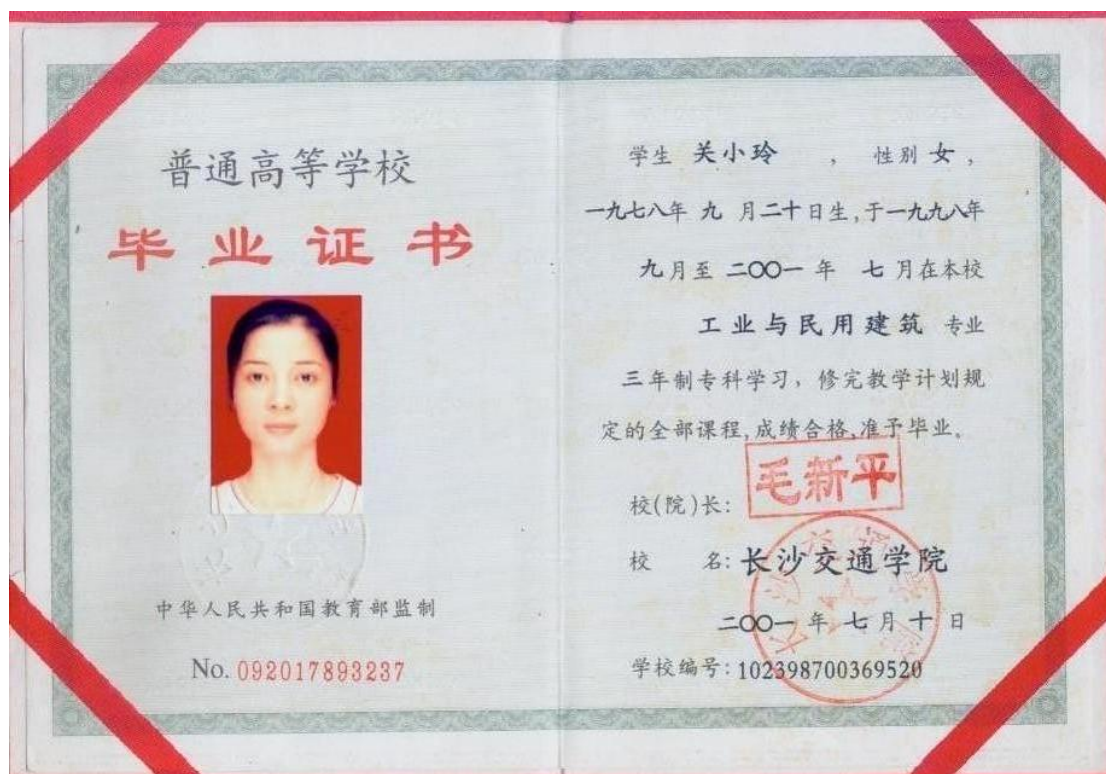 普通高等学校
毕业证书
中华人民共和国教育部监制
No. 092017893237
学生 关小玲 , 性别 女,
一九七八年 九 月二十日生,于一九九八年
九月至 二〇〇一 年 七月在本校
工业与民用建筑 专业
三年制专科学习, 修完教学计划规
定的全部课程,成绩合格,准予毕业。
校(院)长: 毛新平
校 名: 长沙交通学院
二〇〇一 年 七 月 十 日
学校编号: 102398700369520